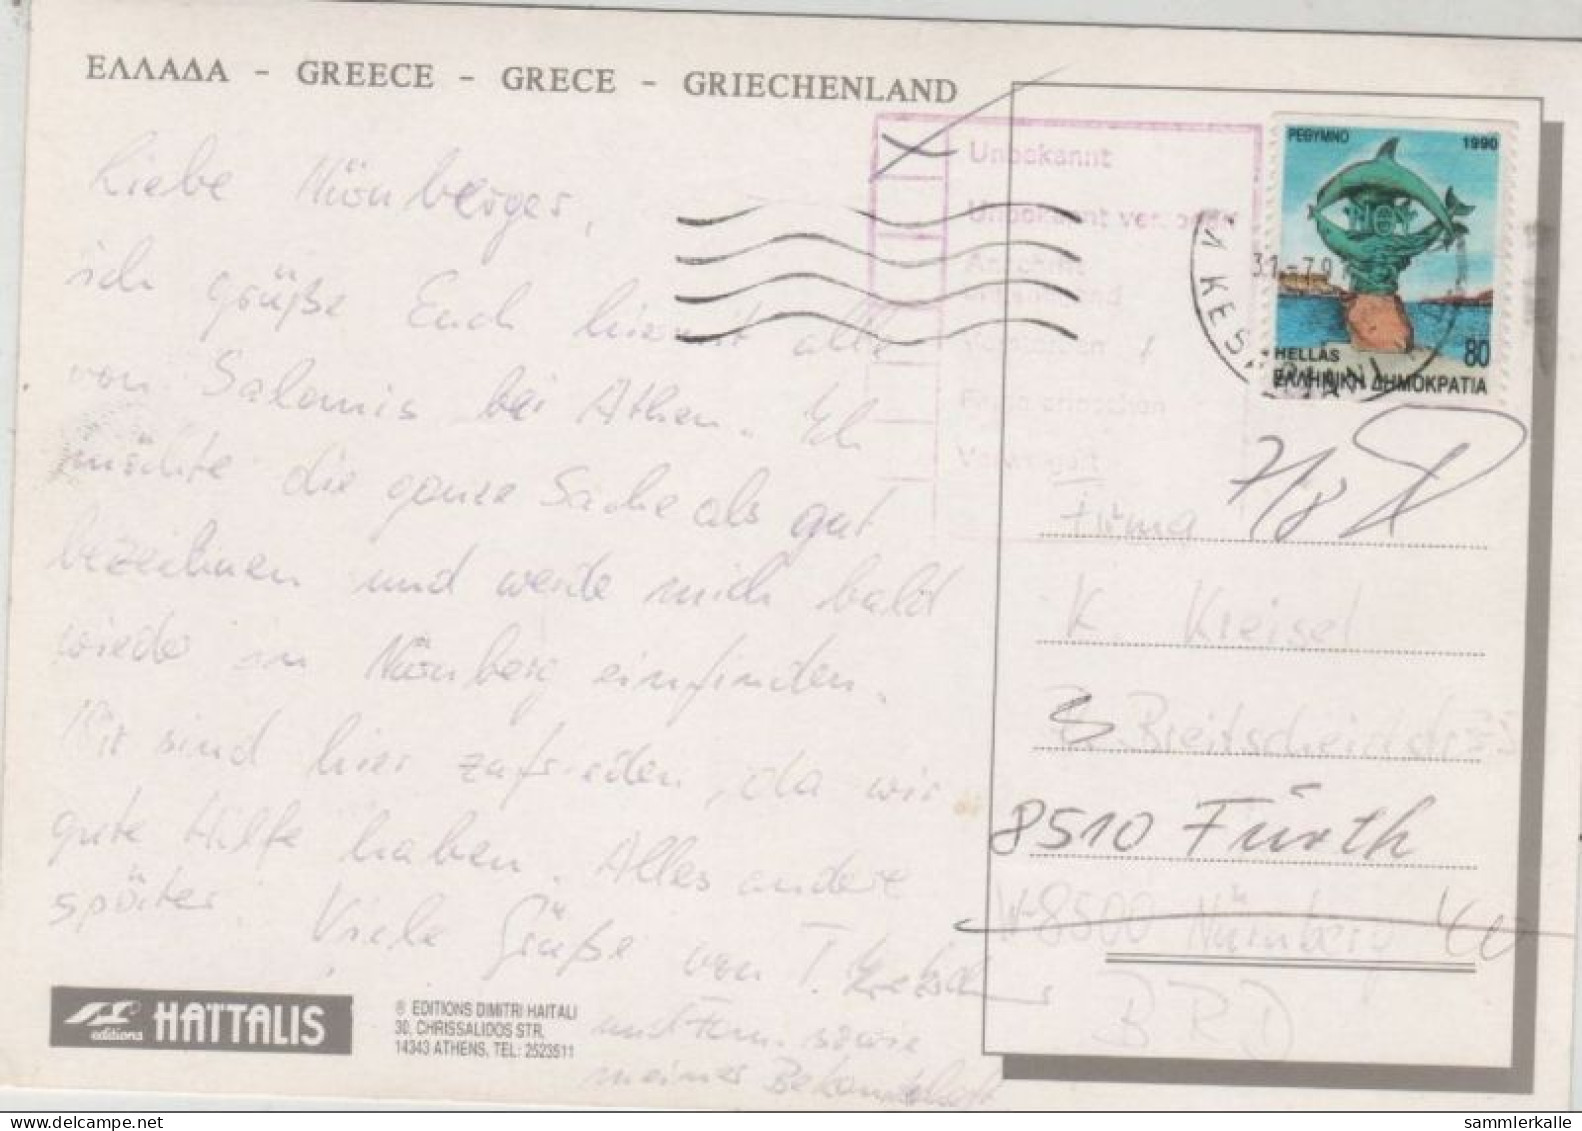 ΕΛΛΑΔΑ - GREECE - GRECE - GRIECHENLAND
Liebe Nürnberger,
ich grüße Euch hiermit alle
von Salamis bei Athen. Ich
möchte die ganze Sache als gut
bezeichnen und werde mich bald
wieder in Nürnberg einfinden.
Wir sind hier zufrieden, da wir
gute Hilfe haben. Alles andere
später. Viele Grüße von T.
und Fam. sowie
meiner Bekanntschaft
editions HAÏTALIS
® EDITIONS DIMITRI HAITALI
30, CHRISSALIDOS STR.
14343 ATHENS, TEL: 2523511
Unbekannt
Unbekannt verzogen
Anschrift
Annahme
Verweigert
ΡΕΘΥΜΝΟ 1990
HELLAS 80
ΕΛΛΗΝΙΚΗ ΔΗΜΟΚΡΑΤΙΑ
31-7.91
Firma
K. Kreisel
Breitscheidstr.
8510 Fürth
W-8500 Nürnberg 40
BRD
sammlerkalle